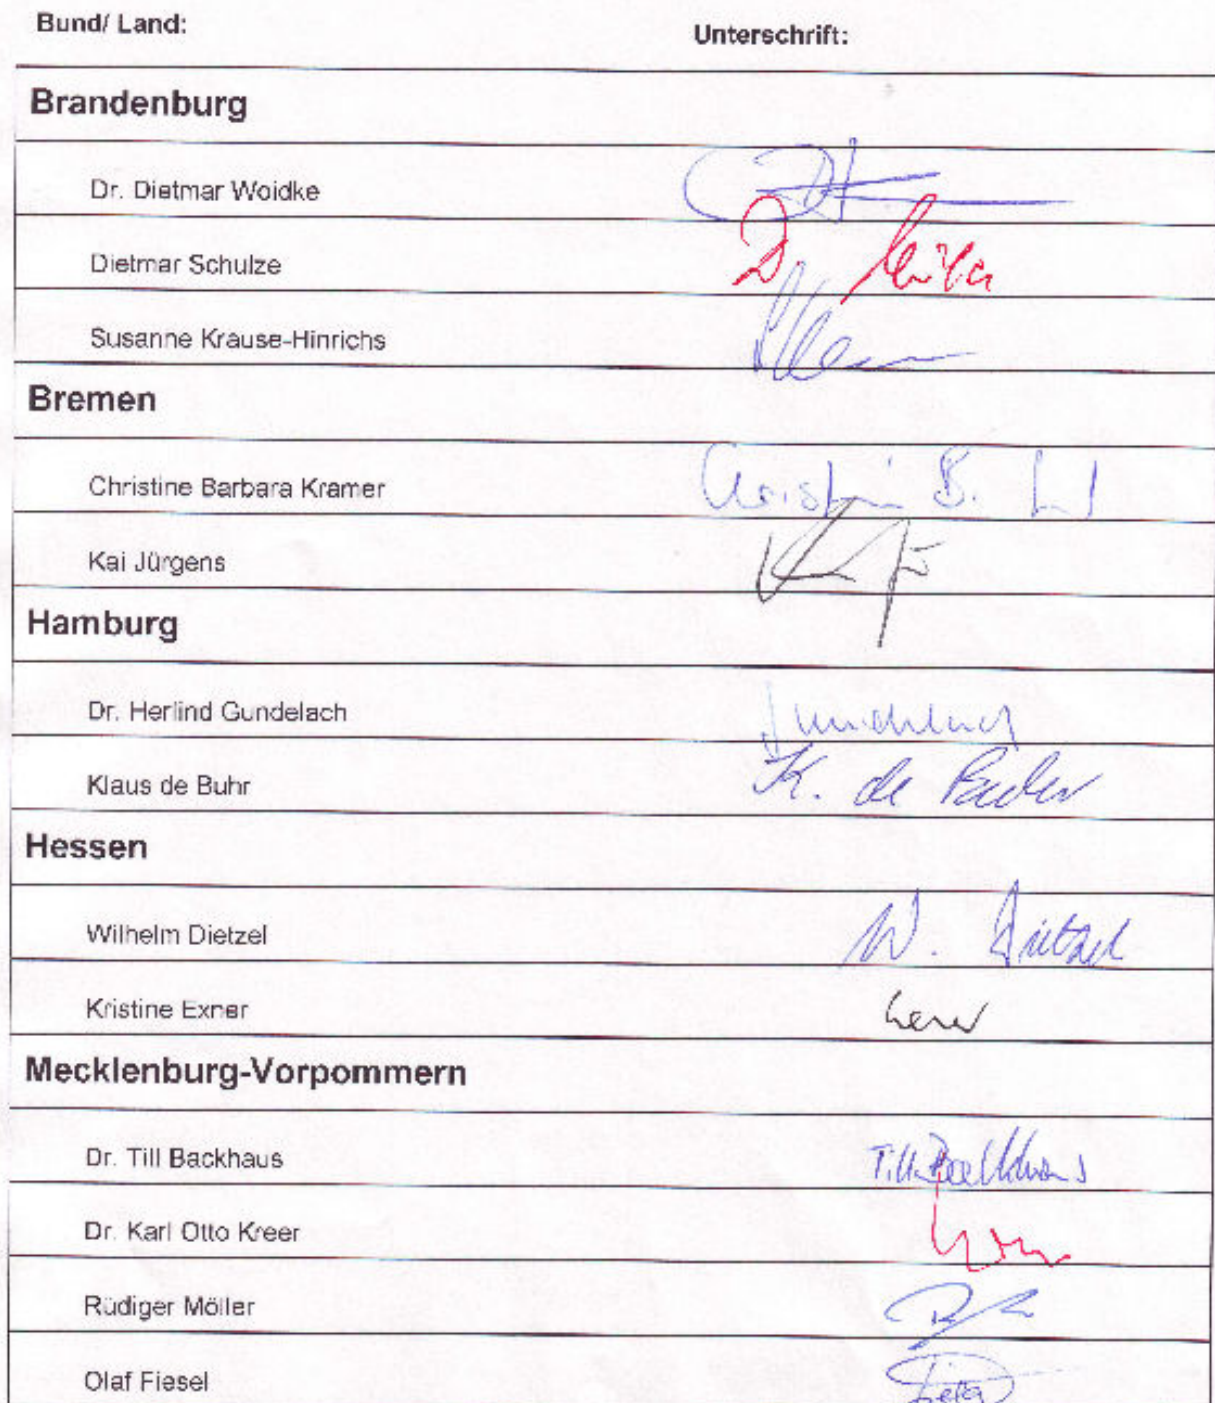 Bund/ Land: Unterschrift:
Brandenburg
Dr. Dietmar Woidke
Dietmar Schulze D.
Susanne Krause-Hinrichs
Bremen
Christine Barbara Kramer Christine B.
Kai Jürgens
Hamburg
Dr. Herlind Gundelach Gundelach
Klaus de Buhr K. de Buhr
Hessen
Wilhelm Dietzel W. Dietzel
Kristine Exner
Mecklenburg-Vorpommern
Dr. Till Backhaus Till Backhaus
Dr. Karl Otto Kreer
Rüdiger Möller
Olaf Fiesel